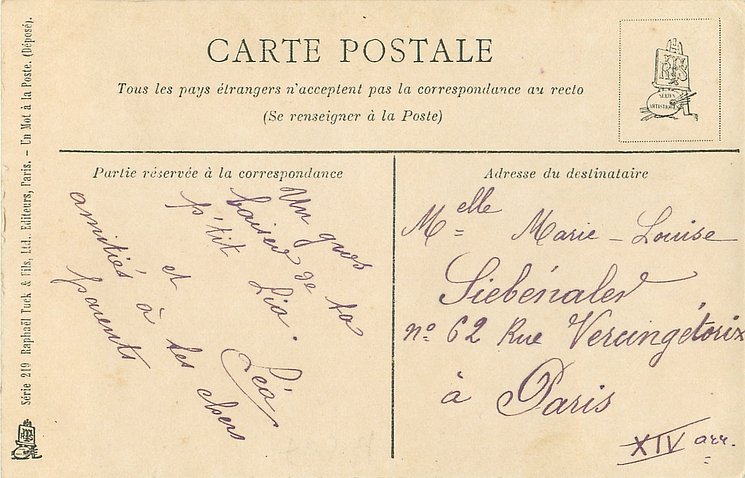 CARTE POSTALE
Tous les pays étrangers n'acceptent pas la correspondance au recto
(Se renseigner à la Poste)
RTS
SÉRIES
ARTISTIQUES
Partie réservée à la correspondance
Un gros
baiser de ta
p'tit Lia.
Léa
et
amitiés à tes chers
parents
Adresse du destinataire
Melle Marie-Louise
Siebénaler
no 62 Rue Vercingétorix
à Paris
XIV arr.
Série 219 Raphaël Tuck & Fils, Ltd. Editeurs, Paris. – Un Mot à la Poste. (Déposé).